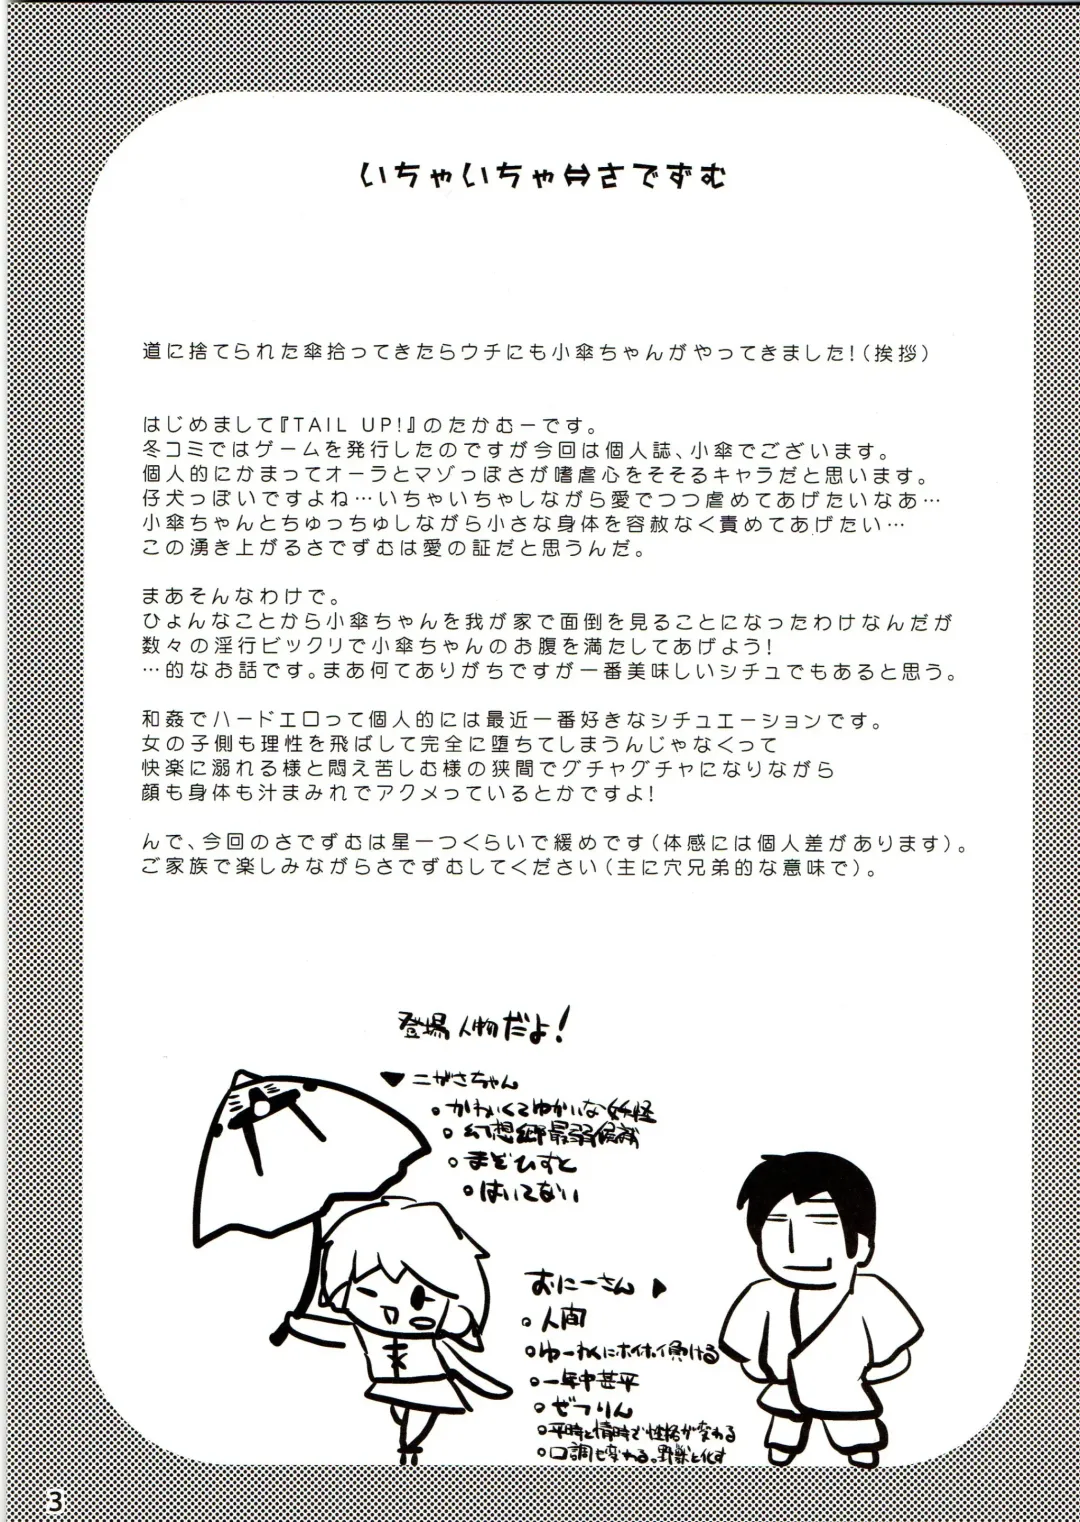 いちゃいちゃ⇔さでずむ
道に捨てられた傘拾ってきたらウチにも小傘ちゃんがやってきました!(挨拶)
はじめまして『TAIL UP!』のたかむーです。
冬コミではゲームを発行したのですが今回は個人誌、小傘でございます。
個人的にかまってオーラとマゾっぽさが嗜虐心をそそるキャラだと思います。
仔犬っぽいですよね…いちゃいちゃしながら愛でつつ虐めてあげたいなあ…
小傘ちゃんとちゅっちゅしながら小さな身体を容赦なく責めてあげたい…
この湧き上がるさでずむは愛の証だと思うんだ。
まあそんなわけで。
ひょんなことから小傘ちゃんを我が家で面倒を見ることになったわけなんだが
数々の淫行ビックリで小傘ちゃんのお腹を満たしてあげよう!
…的なお話です。まあ何てありがちですが一番美味しいシチュでもあると思う。
和姦でハードエロって個人的には最近一番好きなシチュエーションです。
女の子側も理性を飛ばして完全に堕ちてしまうんじゃなくって
快楽に溺れる様と悶え苦しむ様の狭間でグチャグチャになりながら
顔も身体も汁まみれでアクメっているとかですよ!
んで、今回のさでずむは星一つくらいで緩めです(体感には個人差があります)。
ご家族で楽しみながらさでずむしてください(主に穴兄弟的な意味で)。
登場人物だよ!
▼こがさちゃん
。かわいくてゆかいな妖怪
。幻想郷最弱候補
。まぞひすと
。はいてない
おにーさん▶
。人間
。ゆーわくにホイホイ負ける
。一年中甚平
。ぜつりん
。平時と情時で性格が変わる
。口調も変わる。野獣と化す
3